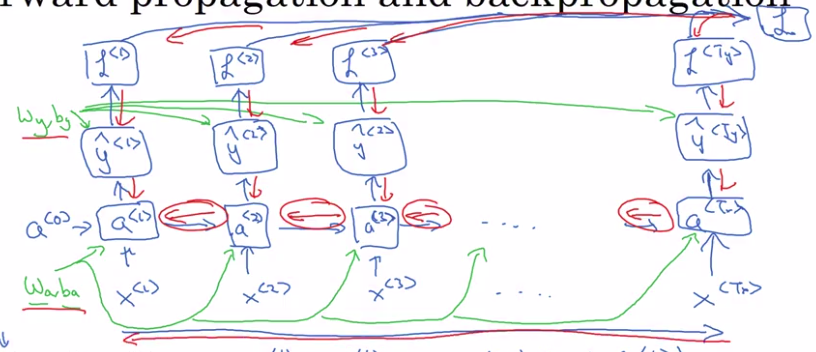 rward propagation and backpropagation
L
L<1> L<2> L<3> L<Ty>
Wy,by
ŷ<1> ŷ<2> ŷ<2> ŷ<Ty>
a<0> → a<1> a<2> a<3> .... a<Tx>
Wa,ba
x<1> x<2> x<3> .... x<Tx>